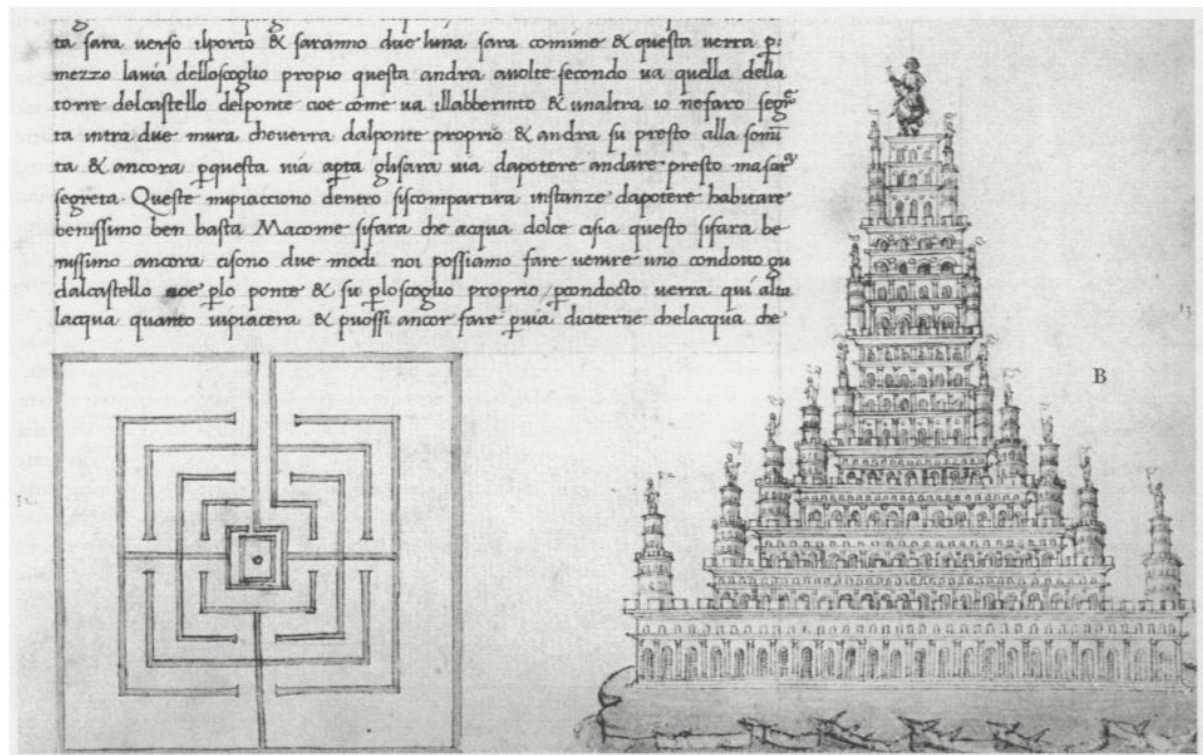 ta sara uerso ilporto & saranno due luna sara comune & questa uerra p
mezzo lauia delloscoglio propio questa andra auolte secondo ua quella della
torre delcastello delponte cioe come ua illabberinto & unaltra io nefaro segre
ta intra due mura cheuerra dalponte proprio & andra su presto alla somi
ta & ancora pquesta uia apta glisara uia dapotere andare presto masar
segreta. Queste mipiacciono dentro siscompartira instanze dapotere habitare
benissimo ben basta Macome sifara che acqua dolce cisia questo sifara be
nissimo ancora cisono due modi noi possiamo fare uenire uno condotto qu
dalcastello cioe plo ponte & su ploscoglio proprio pcondocto uerra qui alta
lacqua quanto uipiacera & puossi ancor fare puia diciterne chelacqua che
B
13
32.